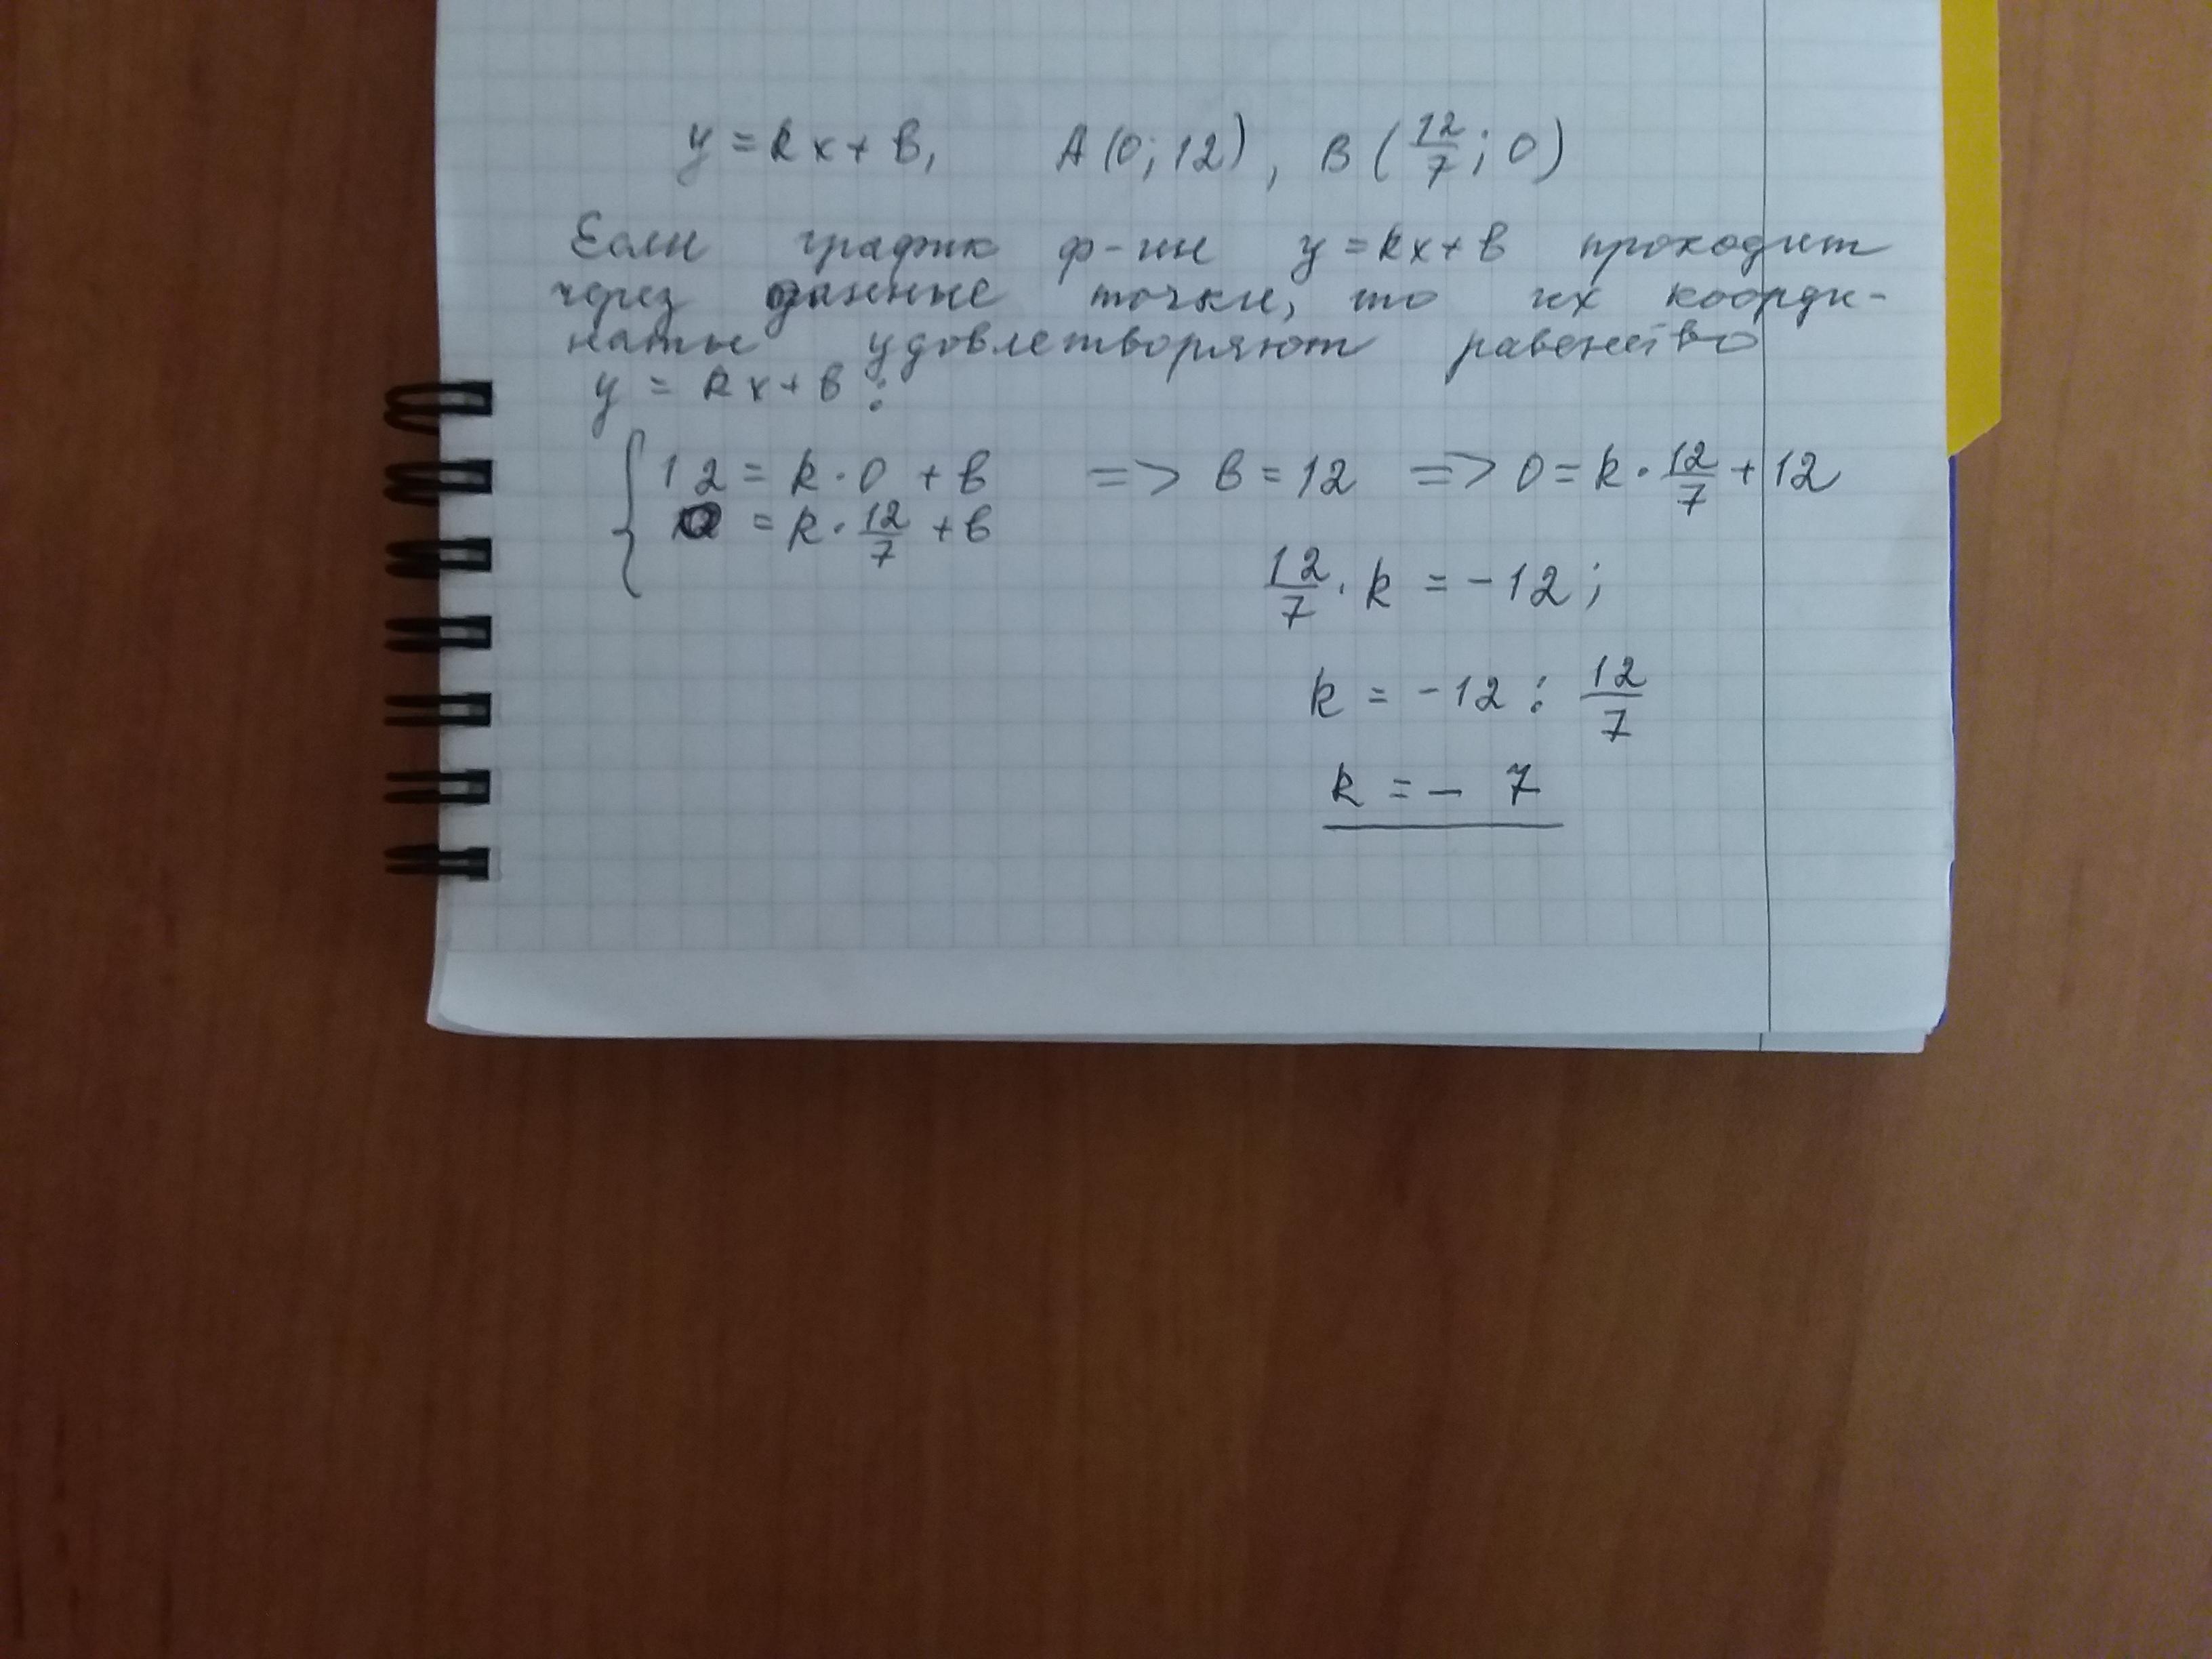 y = kx + в, А(0; 12), В(12/7; 0)
Если график ф-ии y = kx + в проходит
через данные точки, то их коорди-
наты удовлетворяют равенство
y = kx + в :
{ 12 = k · 0 + в => в = 12 => 0 = k · 12/7 + 12
0 = k · 12/7 + в
12/7 · k = -12;
k = -12 : 12/7
k = - 7